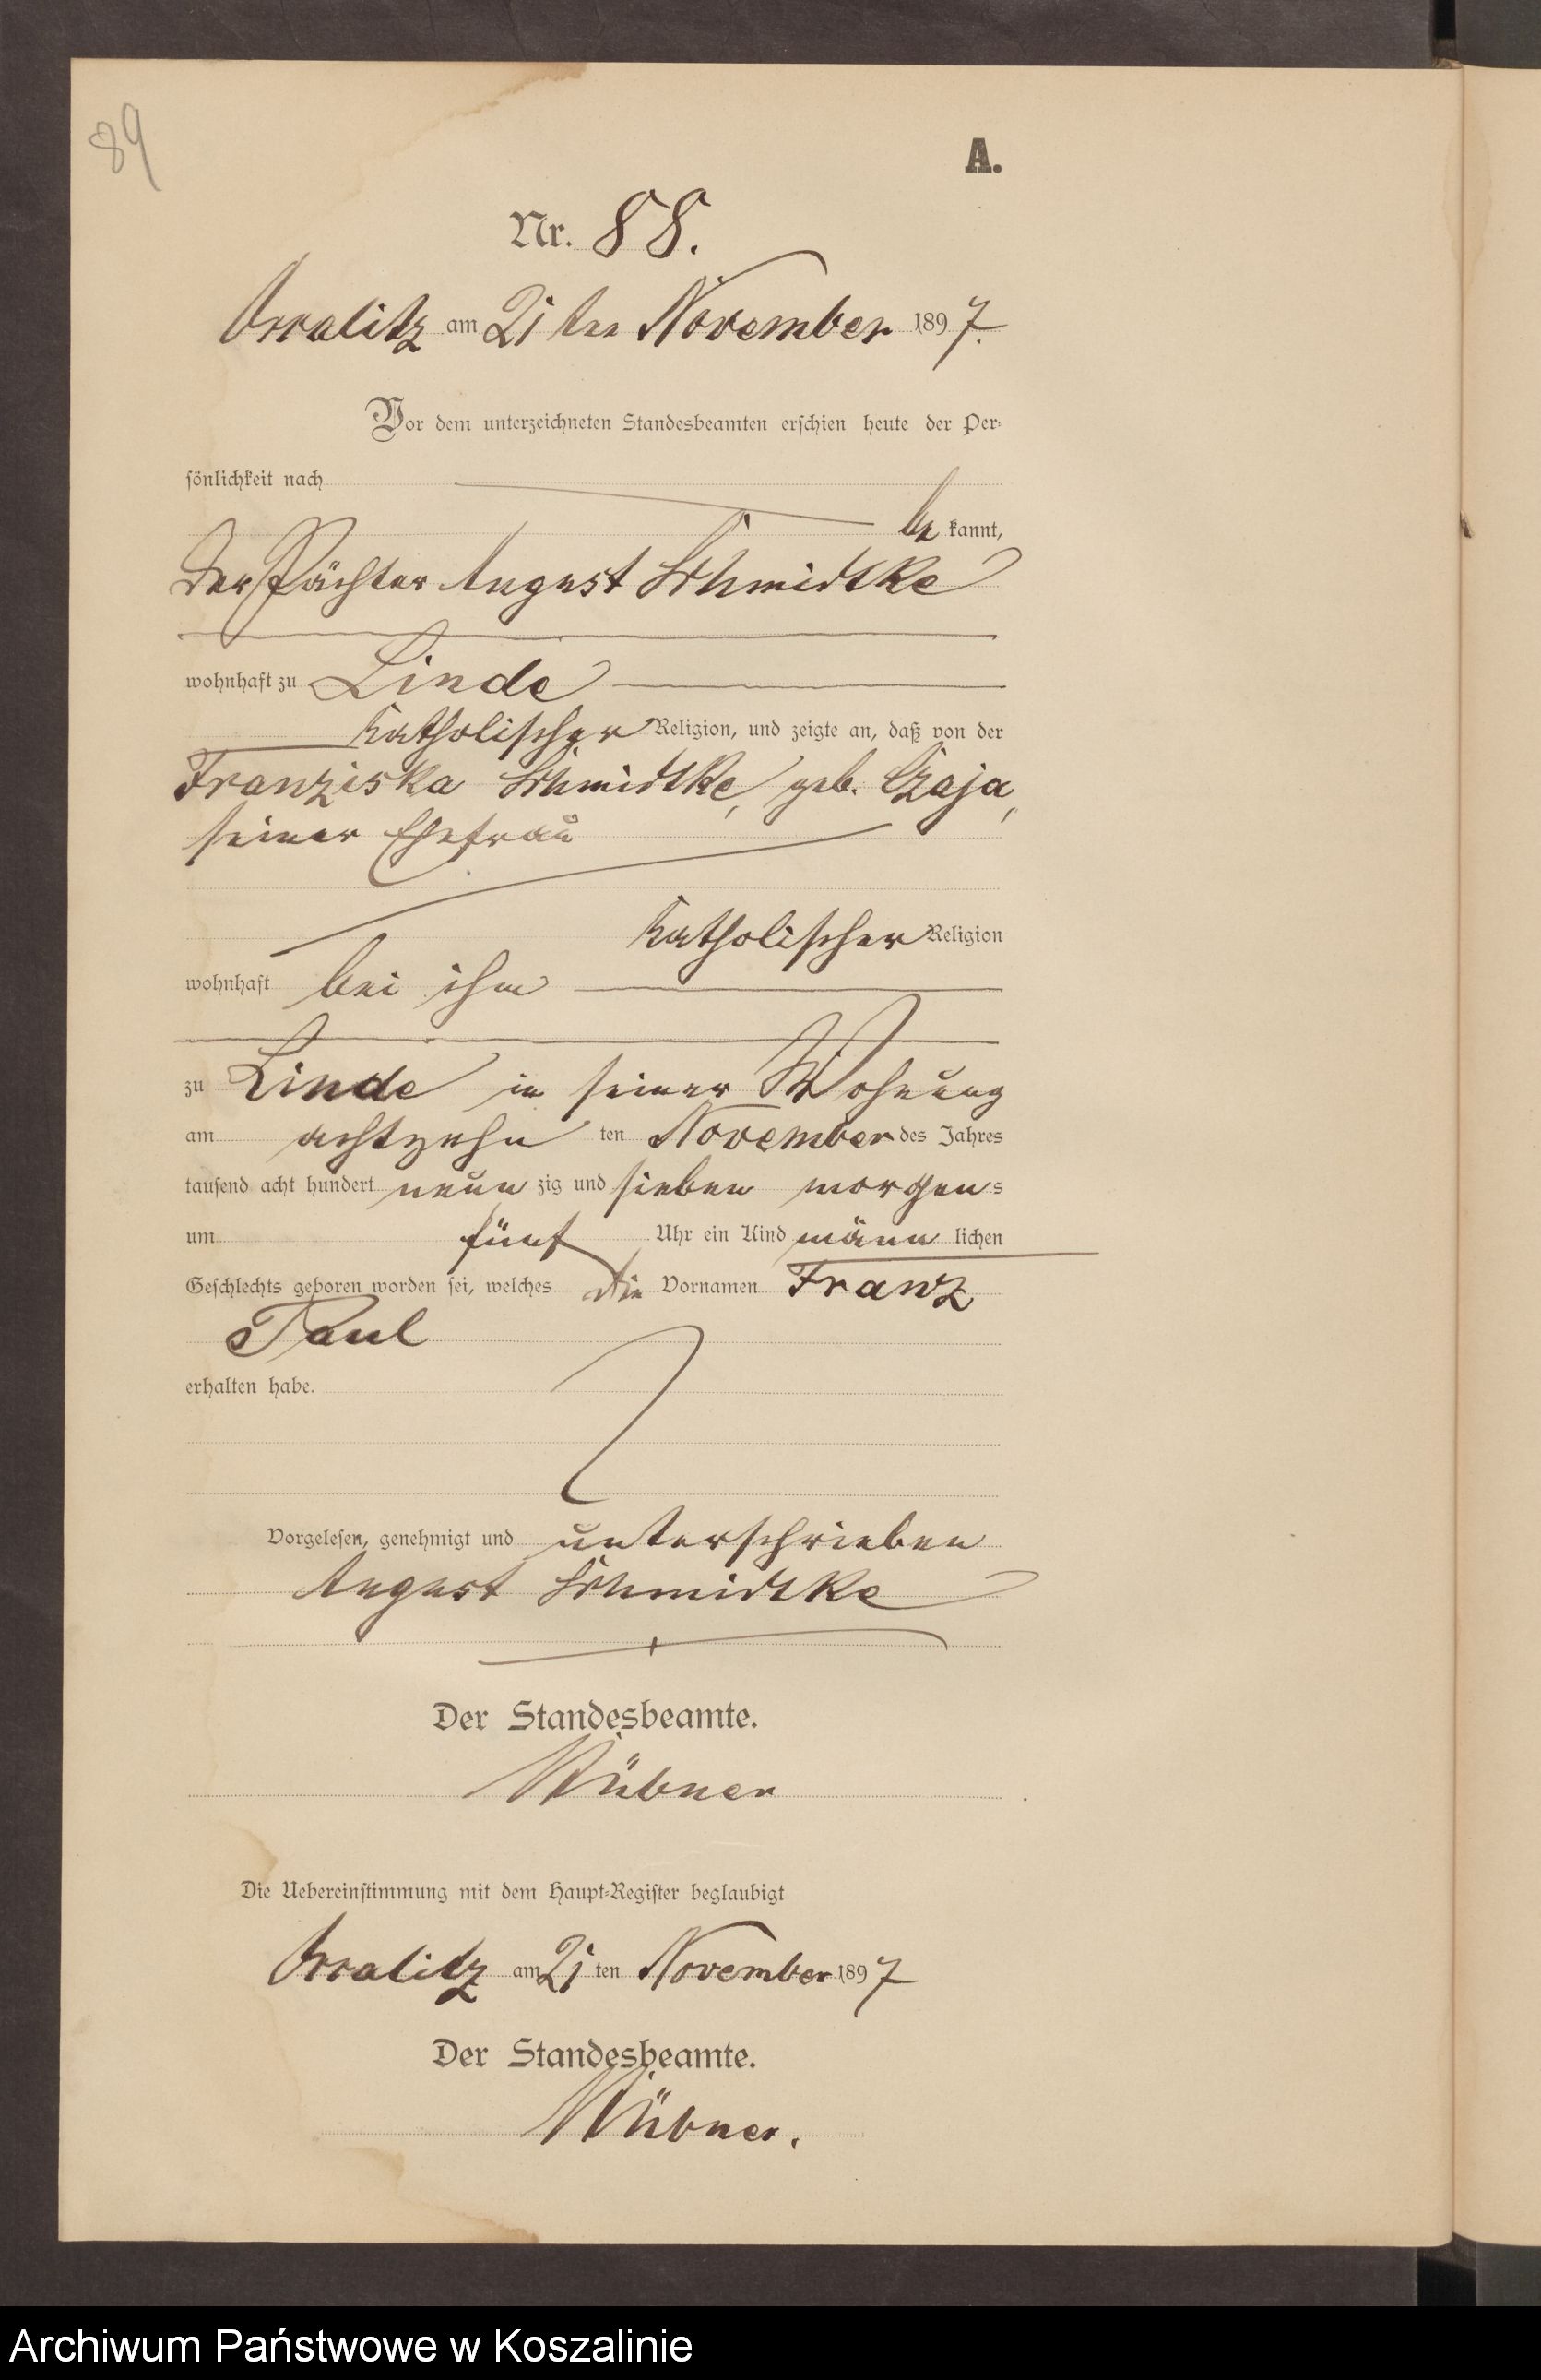 89
A.
Nr. 88.
am 21ten November 1897.
Vor dem unterzeichneten Standesbeamten erschien heute der Per-
sönlichkeit nach
be kannt,
der Pächter August Schmidtke
wohnhaft zu Linde
katholischer Religion, und zeigte an, daß von der
Franziska Schmidtke, geb. Czaja,
seiner Ehefrau
katholischer Religion
wohnhaft bei ihm
zu Linde in seiner Wohnung
am achtzehn ten November des Jahres
tausend acht hundert neun zig und sieben morgens
um fünf Uhr ein Kind männ lichen
Geschlechts geboren worden sei, welches die Vornamen Franz
Paul
erhalten habe.
Vorgelesen, genehmigt und unterschrieben
August Schmidtke
Der Standesbeamte.
Die Uebereinstimmung mit dem Haupt-Register beglaubigt
am 21 ten November 1897
Der Standesbeamte.
Archiwum Państwowe w Koszalinie